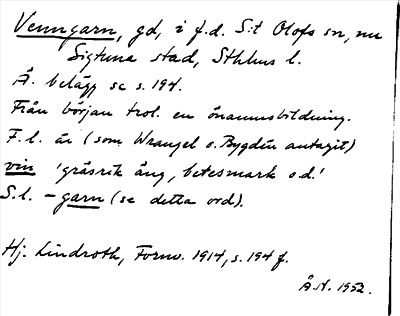 Venngarn, gd, i f.d. S:t Olofs sn, nu
Sigtuna stad, Sthlms l.
Ä. belägg se s. 194.
Från början trol. en önamnsbildning.
F.l. är (som Wrangel o. Bygdén antagit)
vin 'gräsrik äng, betesmark o.d.'
S.l. - garn (se detta ord).
Hj. Lindroth, Fornv. 1914, s. 194 f.
Å.N. 1952.